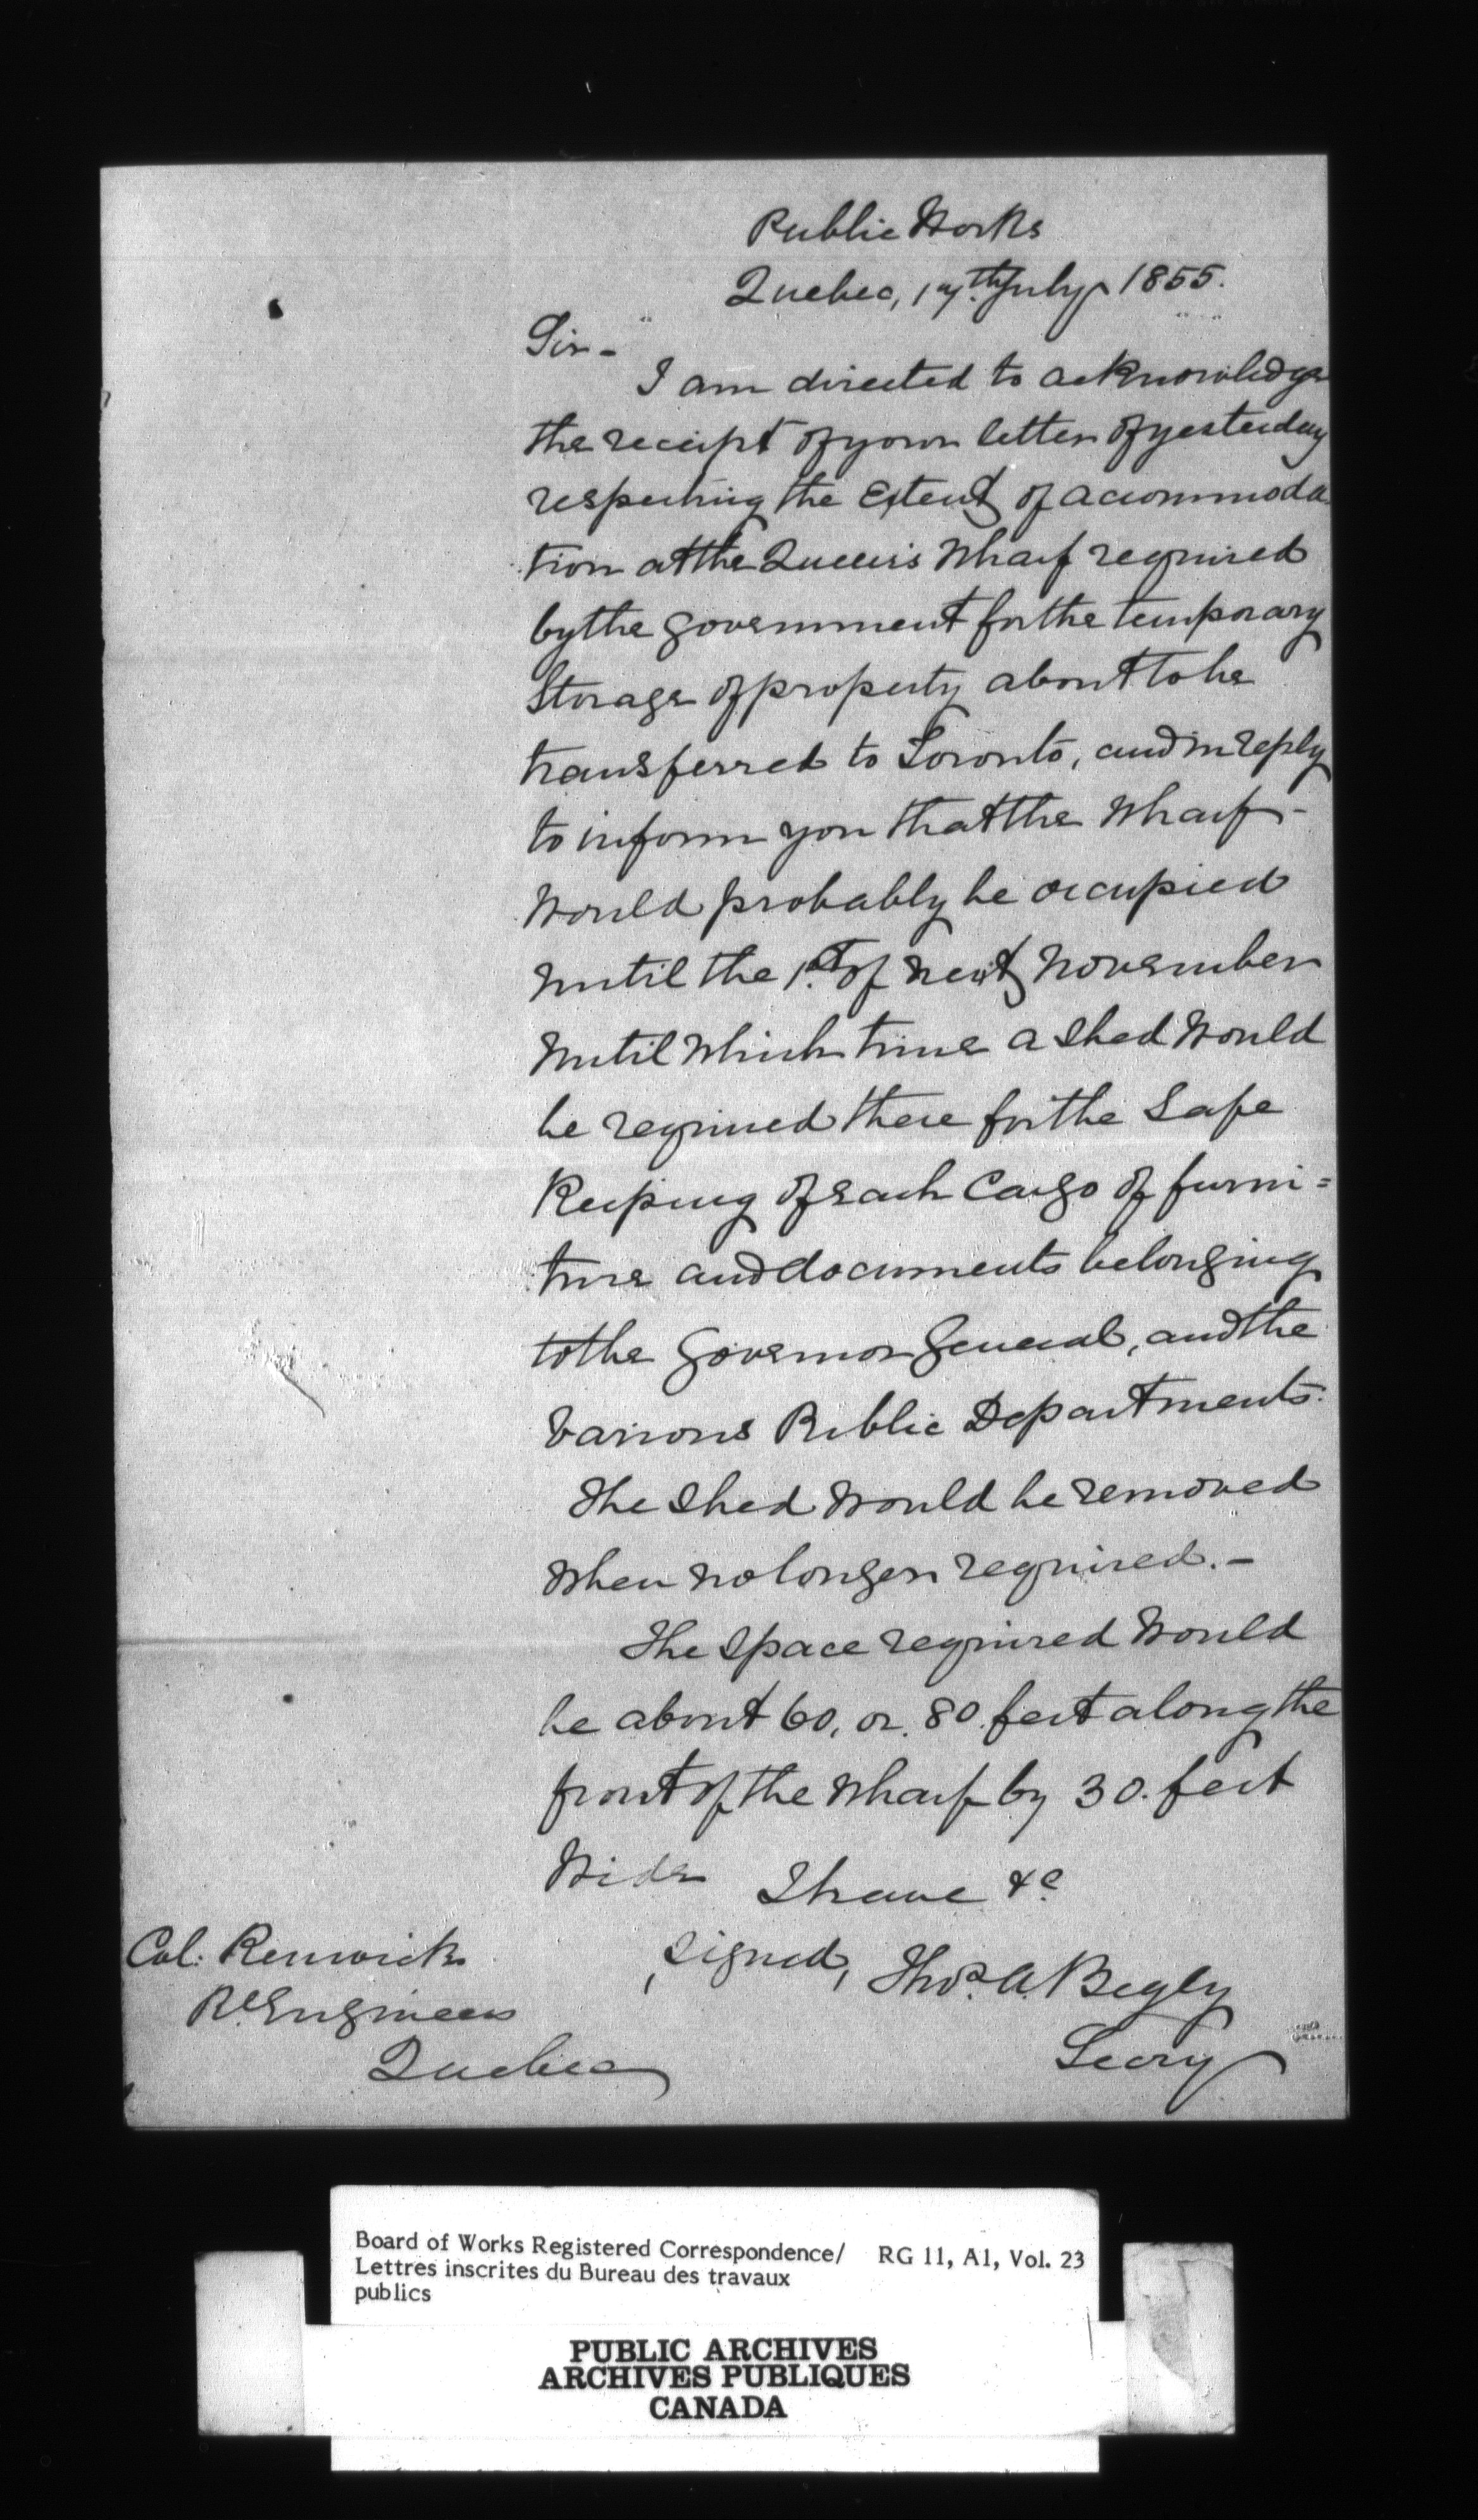 Public Works
Quebec, 17th. July 1855.
Sir -
I am directed to acknowledge
the receipt of your letter of yesterday
respecting the Extent of accommoda-
tion at the Queen's Wharf required
by the Government for the temporary
Storage of property about to be
transferred to Toronto, and in reply
to inform you that the Wharf -
Would probably be occupied
until the 1st. of next November
Until Which time a Shed Would
be required there for the Safe
Keeping of each Cargo of furni=
ture and documents belonging
to the Governor General, and the
Various Public Departments.
The Shed Would be removed
When no longer required. -
The Space required Would
be about 60, or. 80. feet along the
front of the Wharf by 30. feet
Wide
I have &c
Signed, Thos. A. Begly
Secry
Col: Renwick
Rl. Engineers
Quebec
Board of Works Registered Correspondence/ RG 11, A1, Vol. 23
Lettres inscrites du Bureau des travaux
publics
PUBLIC ARCHIVES
ARCHIVES PUBLIQUES
CANADA